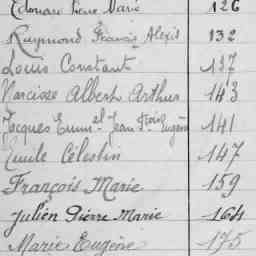 Edouard Pierre Marie 126
Raymond Francis Alexis 132
Louis Constant 137
Narcisse Albert Arthur 143
Jacques Emmel Jean Fois Eugène 141
Emile Célestin 147
François Marie 159
Julien Pierre Marie 164
Marie Eugène 175